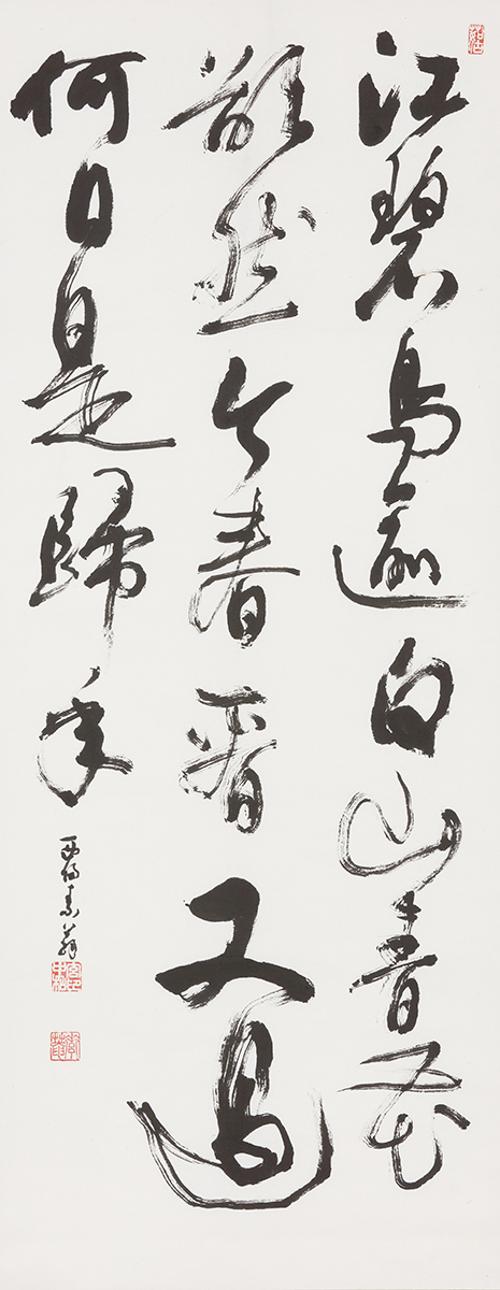 江碧鳥逾白山青花
欲然今春看又過
何日是歸年
素翁